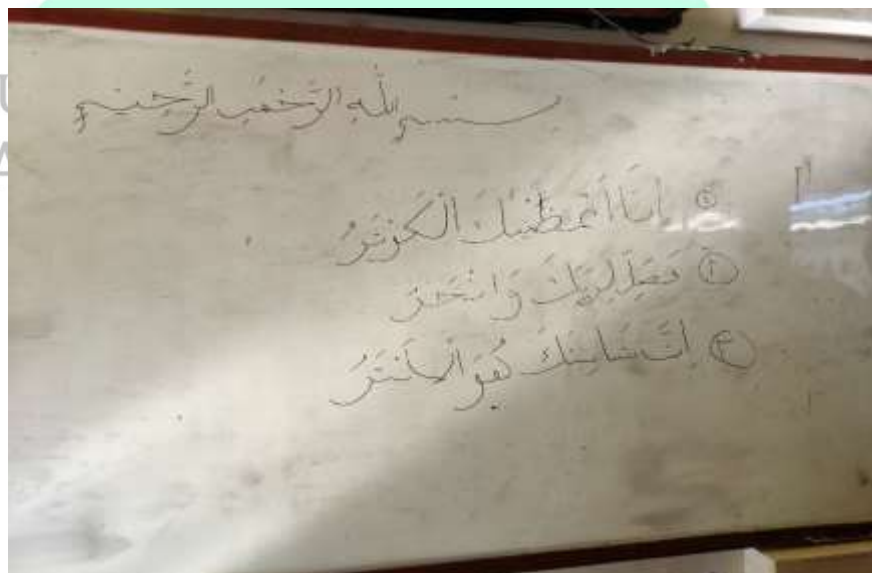 بِسْمِ اللَّهِ الرَّحْمَنِ الرَّحِيمِ
① إِنَّا أَعْطَيْنَكَ الْكَوْثَرَ
② فَصَلِّ لِرَبِّكَ وَانْحَرْ
③ إِنَّ شَانِئَكَ هُوَ الْأَبْتَرُ